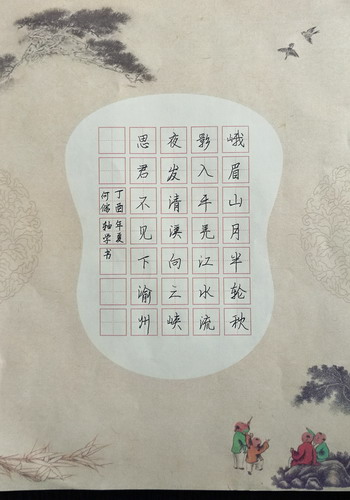 峨眉山月半轮秋
影入平羌江水流
夜发清溪向三峡
思君不见下渝州
丁酉年夏
何 学书